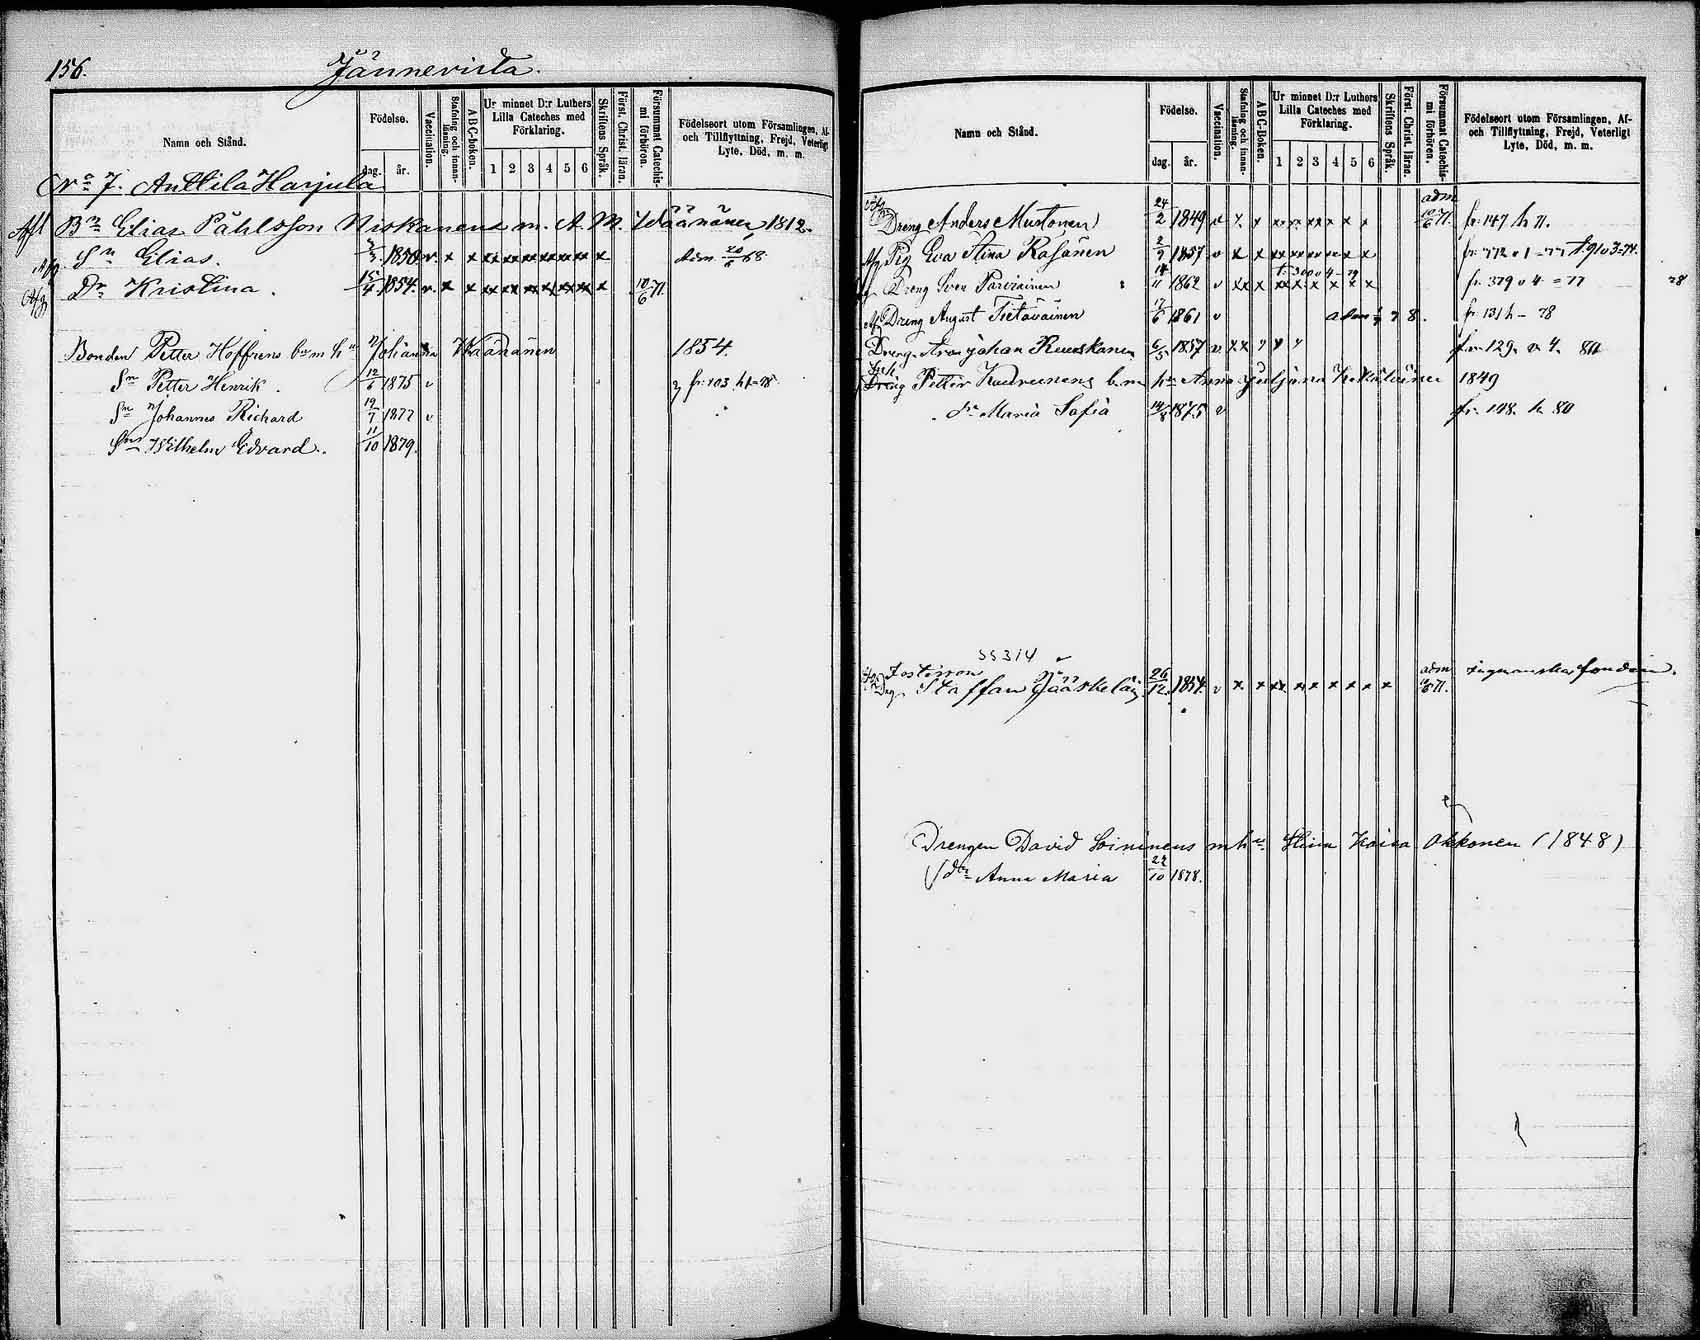 156.
Jännevirta.
Namn och Stånd.
Födelse.
dag. år.
Vaccination.
Stafning och innanläsning.
ABC-boken.
Ur minnet D:r Luthers Lilla Cateches med Förklaring.
1 2 3 4 5 6
Skriftens Språk.
Först. Christ. läran.
Försummat Catechismi förhören.
Födelseort utom Församlingen, Af- och Tillflyttning, Frejd, Veterligt Lyte, Död, m. m.
No 7. Anttila Harjula
Bn Elias Påhlsson Niskanens m. A. M. Väänänen 1812.
Sn Elias. 1850 v. x x xx xx xx xx xx xx x Adm 20/6 68
Dr Kristina. 15/4 1854. v. x x xx xx xx xx xx xx x 10/6 71.
Bonden Petter Hoffrens b. m. hu Johanna Väänänen 1854.
Sn Petter Henrik. 12/6 1875 v fr. 103 h 78
Sn Johannes Richard 19/7 1877 v
Sn Wilhelm Edvard. 11/10 1879.
Namn och Stånd.
Födelse.
dag. år.
Vaccination.
Stafning och innanläsning.
ABC-Boken.
Ur minnet D:r Luthers Lilla Cateches med Förklaring.
1 2 3 4 5 6
Skriftens Språk.
Först. Christ. läran.
Försummat Catechismi förhören.
Födelseort utom Församlingen, Af- och Tillflyttning, Frejd, Veterligt Lyte, Död, m. m.
Dreng Anders Mustonen 24/2 1849 v x x xx xx xx x x x adm 10/6 71. fr. 147 h 71.
Pig Eva Stina Kasänen 2/9 1857 v x x xx xx xx xx x x
Dreng Sven Parviainen 14/11 1862 v xx x xx x x x x x fr. 379 v 4 = 77
78
Dreng August Tietäväinen 17/6 1861 v adm 78. fr. 131 h - 78
Dreng Aron Johan Ruuskanen 6/5 1857 v x x fr. 129. v 4. 80
Dreng Petter b. m. hu Anna Juljana 1849
dr Maria Sofia 14/8 1875 v fr. 148. h 80
55314
Fosterson
Staffan Jääskeläin 26/12 1854. v x x xx xx x x x x x adm 71.
Drengen David Soininens m hu Okkonen (1848)
dtr Anna Maria 22/10 1878.